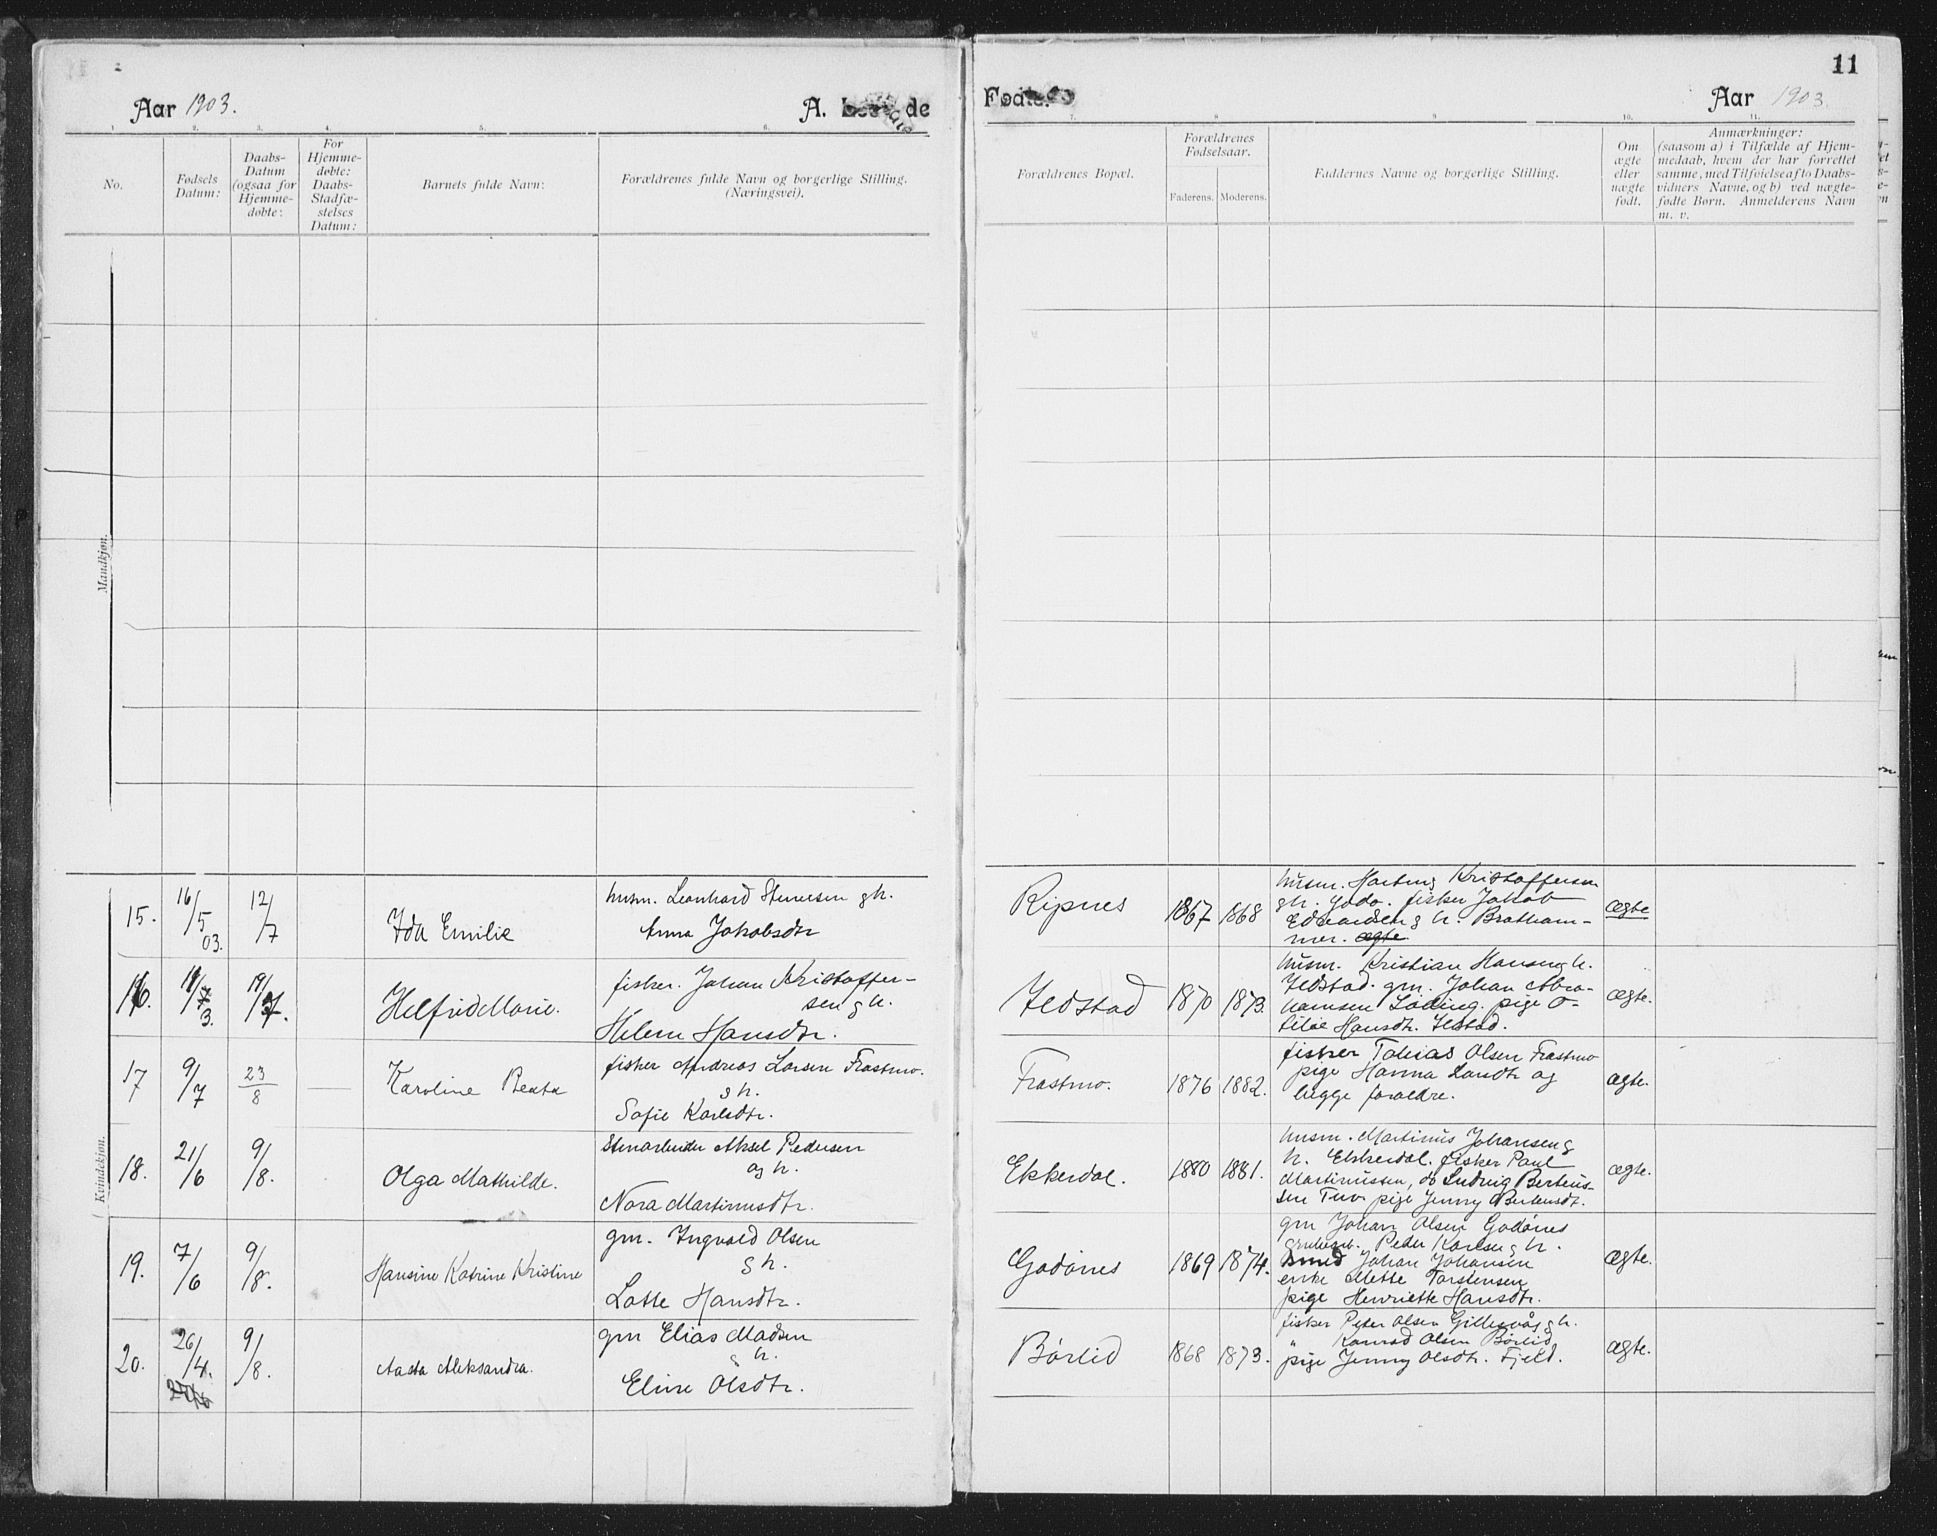 11
Aar 1903. A. de Fødte. Aar 1903.
1. 2. 3. 4. 5. 6. 7. 8 9 10. 11.
No.
Fødsels Datum:
Daabs-Datum (ogsaa for Hjemme-døbte:
For Hjemme-døbte: Daabs-Stadfæ-stelses Datum:
Barnets fulde Navn:
Forældrenes fulde Navn og borgerlige Stilling.
(Næringsvei).
Forældrenes Bopæl.
Forældrenes Fødselsaar.
Faderens. Moderens.
Faddernes Navne og borgerlige Stilling.
Om ægte eller uægte født.
Anmærkninger:
(saasom a) i Tilfælde af Hjem-
medaab, hvem der har forrettet
samme, med Tilføielse af to Daabs-
vidners Navne, og b) ved uægte-
fødte Børn. Anmelderens Navn
m. v.
Mandkjøn.
Kvindekjøn.
15. 16/5 03. 12/7 Ida Emilie
husm. Leonhard gh.
Anna Jakobsdtr
Ripnes 1867 1868
husm. Hartvig Kristoffersen
gh. Godø. fisker Jakob
Edvardsen g h. Bratham-
mer. ægte
ægte
16. 19/7. Helfrid Marie.
fisker. Johan Kristoffer-
sen g h.
Helene Hansdtr.
Ildstad 1870 1873.
husm. Kristian Hansen g h.
Ildstad. gm. Johan Abra-
hamsen Løding. pige O-
tilie Hansdtr. Ildstad.
ægte.
17 9/7 23/8 Karoline Beata
fisker Andreas Larsen Frostmo.
g h.
Sofie Karlsdtr.
Frostmo. 1876 1882.
fisker Tobias Olsen Frostmo
pige Hanna Larsdtr og
begge forældre.
ægte.
18. 21/6 9/8. Olga Mathilde.
Stenarbeider Aksel Pedersen
og h.
Nora Martinusdtr.
Ekkerdal. 1880 1881.
husm. Martinus Johansen g
h. Ekkerdal. fisker Paul
Martinussen, do Ludvig Bertheus-
sen Tuv pige Jenny Berteusdtr.
ægte.
19. 7/6 9/8. Hansine Katrine Kristine
gm. Ingvald Olsen
g h.
Lotte Hansdtr.
Godønes 1869 1874.
gm Johan Olsen Godønes
grubearb. Peder Karlsen g h.
Smed Johan Johansen
enke Mette Torstensen
pige Henriette Hansdtr.
ægte.
20. 26/4. 9/8. Aasta Aleksandra.
gm Elias Madsen
g h.
Eline Olsdtr.
Børlid 1868 1873.
fisker Peter Olsen Gillesvåg g h.
" Konrad Olsen Børlid
pige Jenny Olsdtr. Fjeld.
ægte.